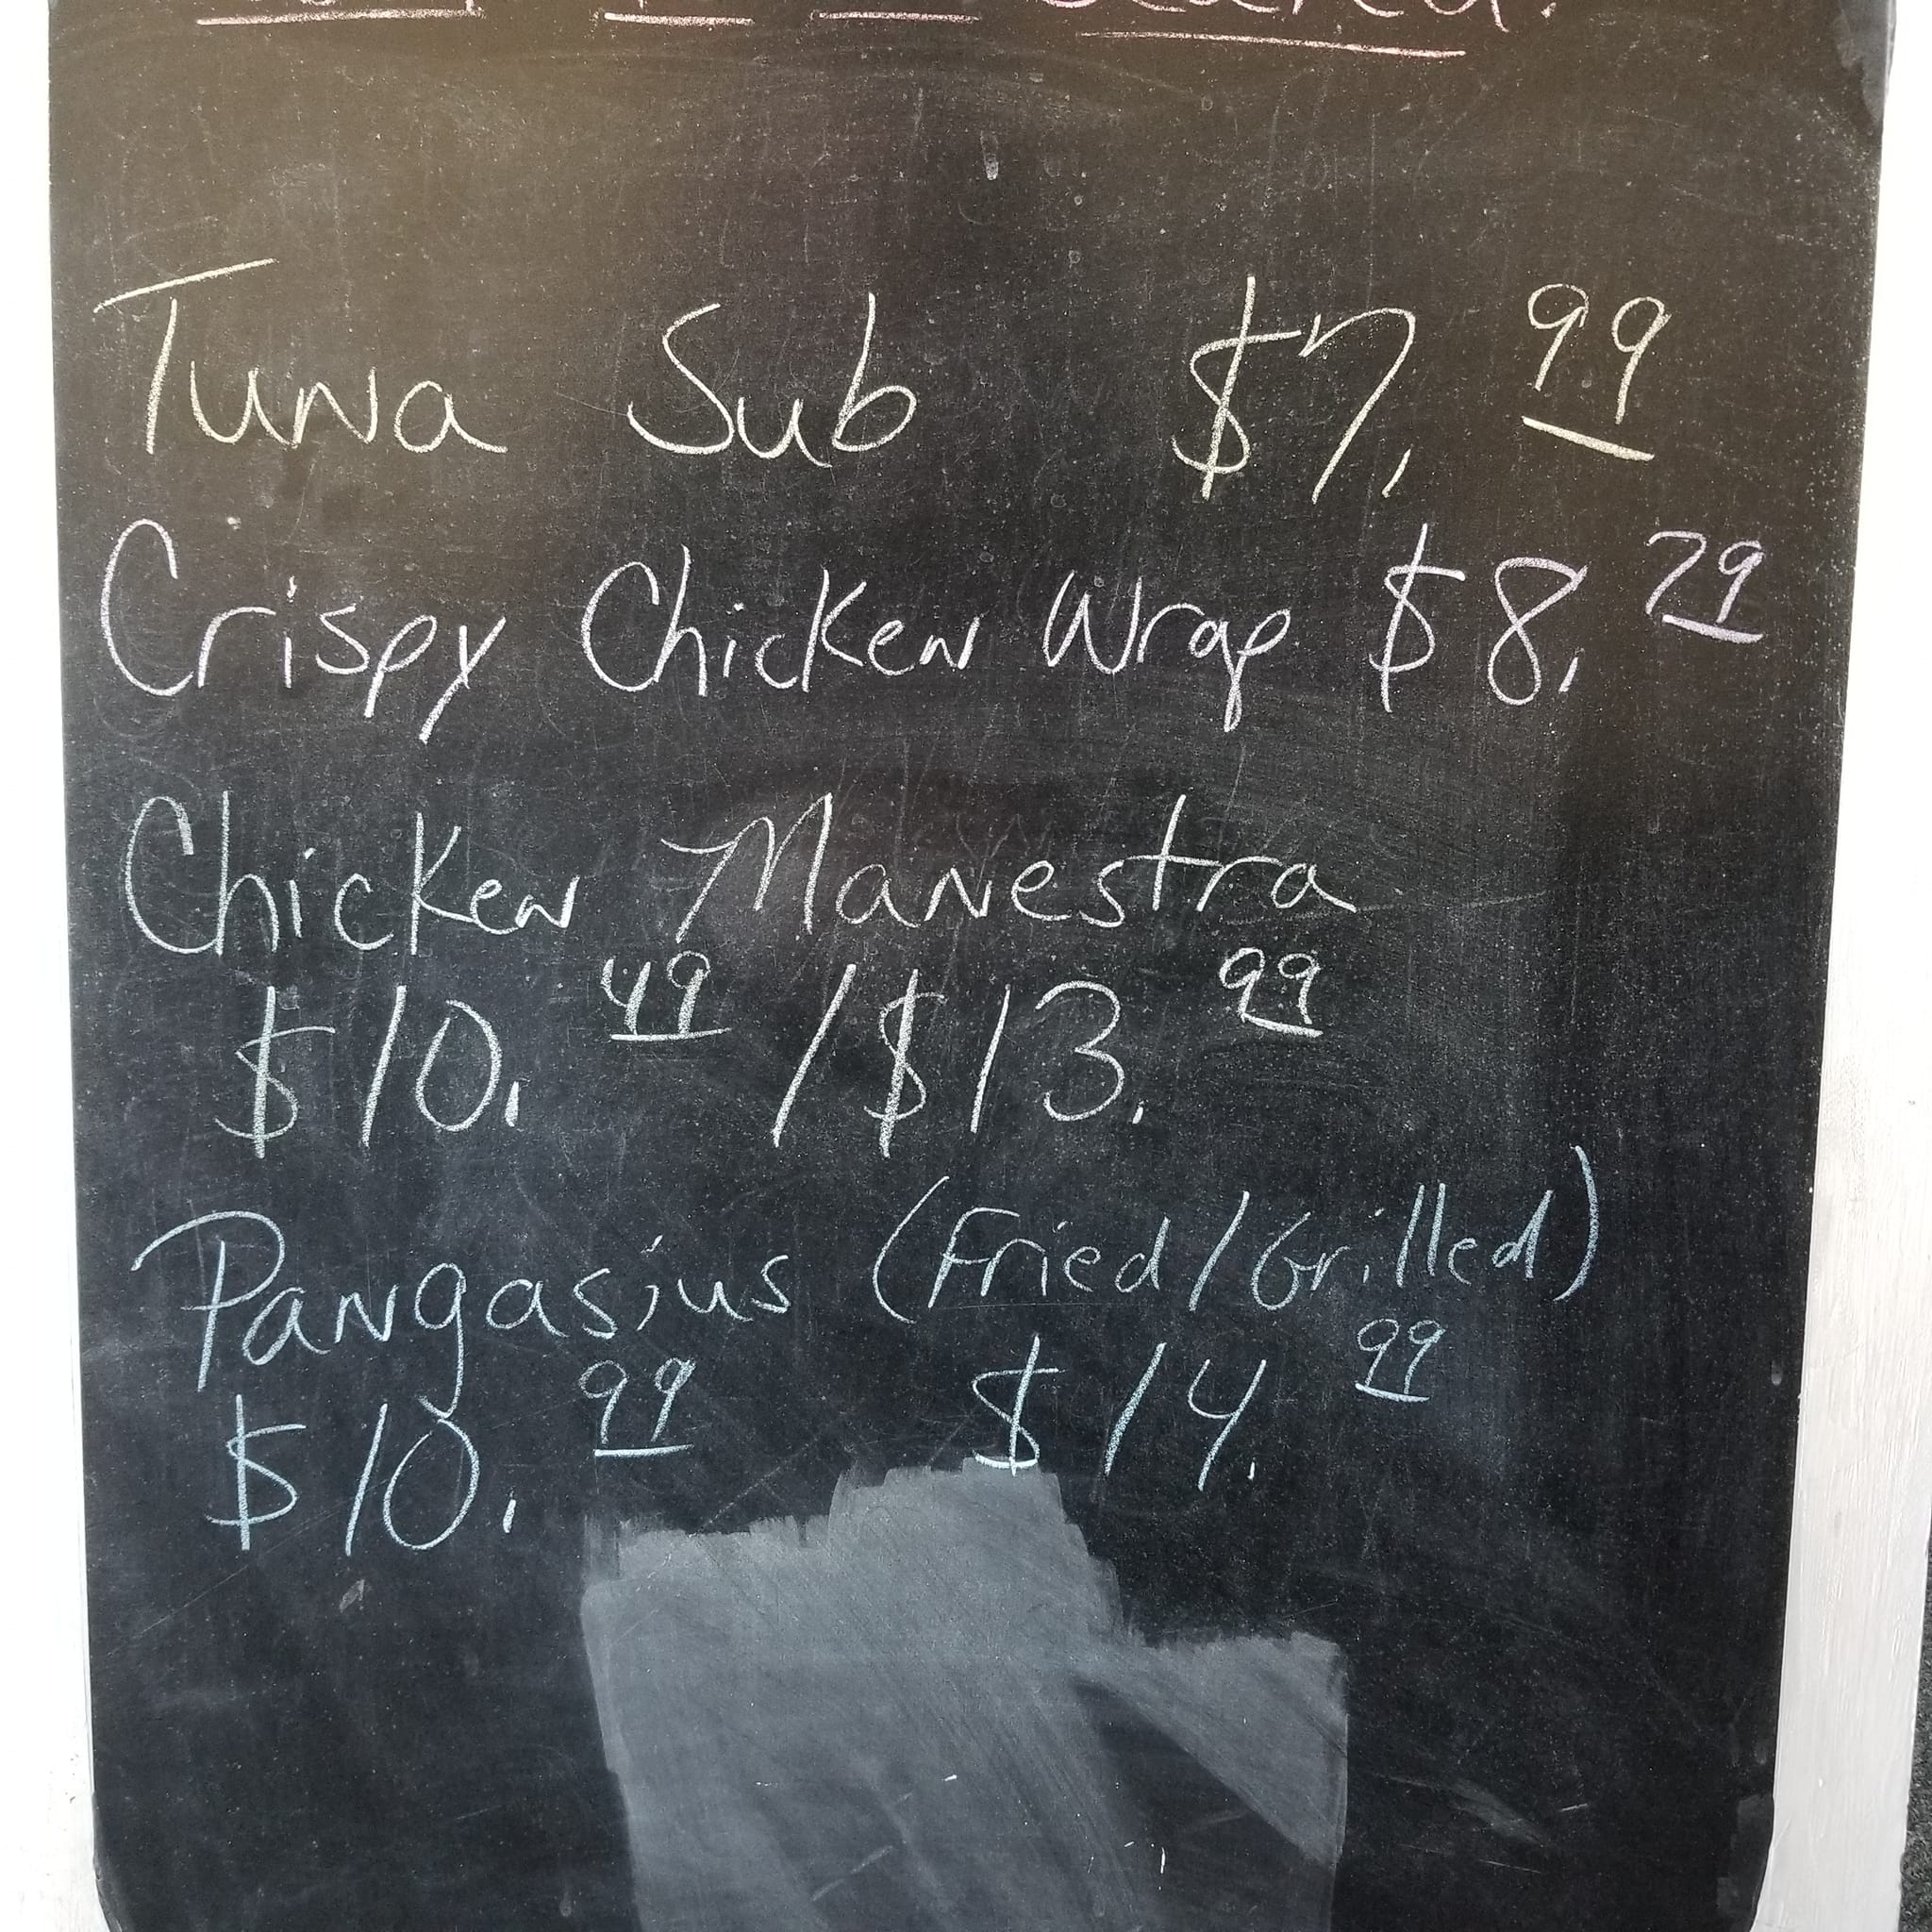 Tuna Sub $7.99
Crispy Chicken Wrap $8.79
Chicken Manestra
$10.49 / $13.99
Pangasius (Fried/Grilled)
$10.99 $14.99